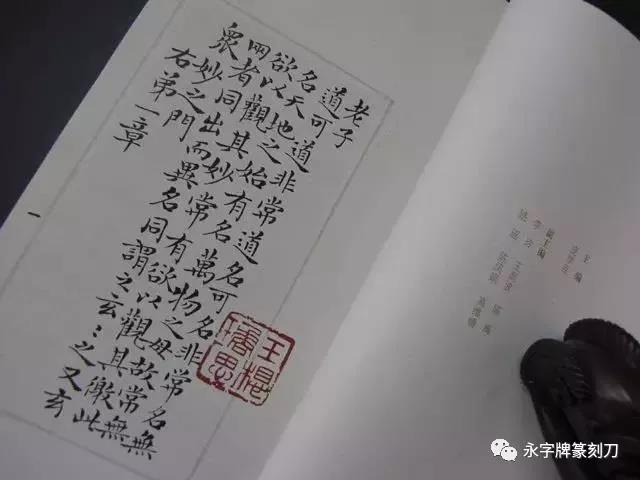 老子
道可道非常道名可名非常名無
名天地之始有名萬物之母故常無
欲以觀其妙常有欲以觀其徼此
兩者同出而異名同謂之玄〻之又玄
衆妙之門
右弟一章
一
主編
副主編
永字牌篆刻刀